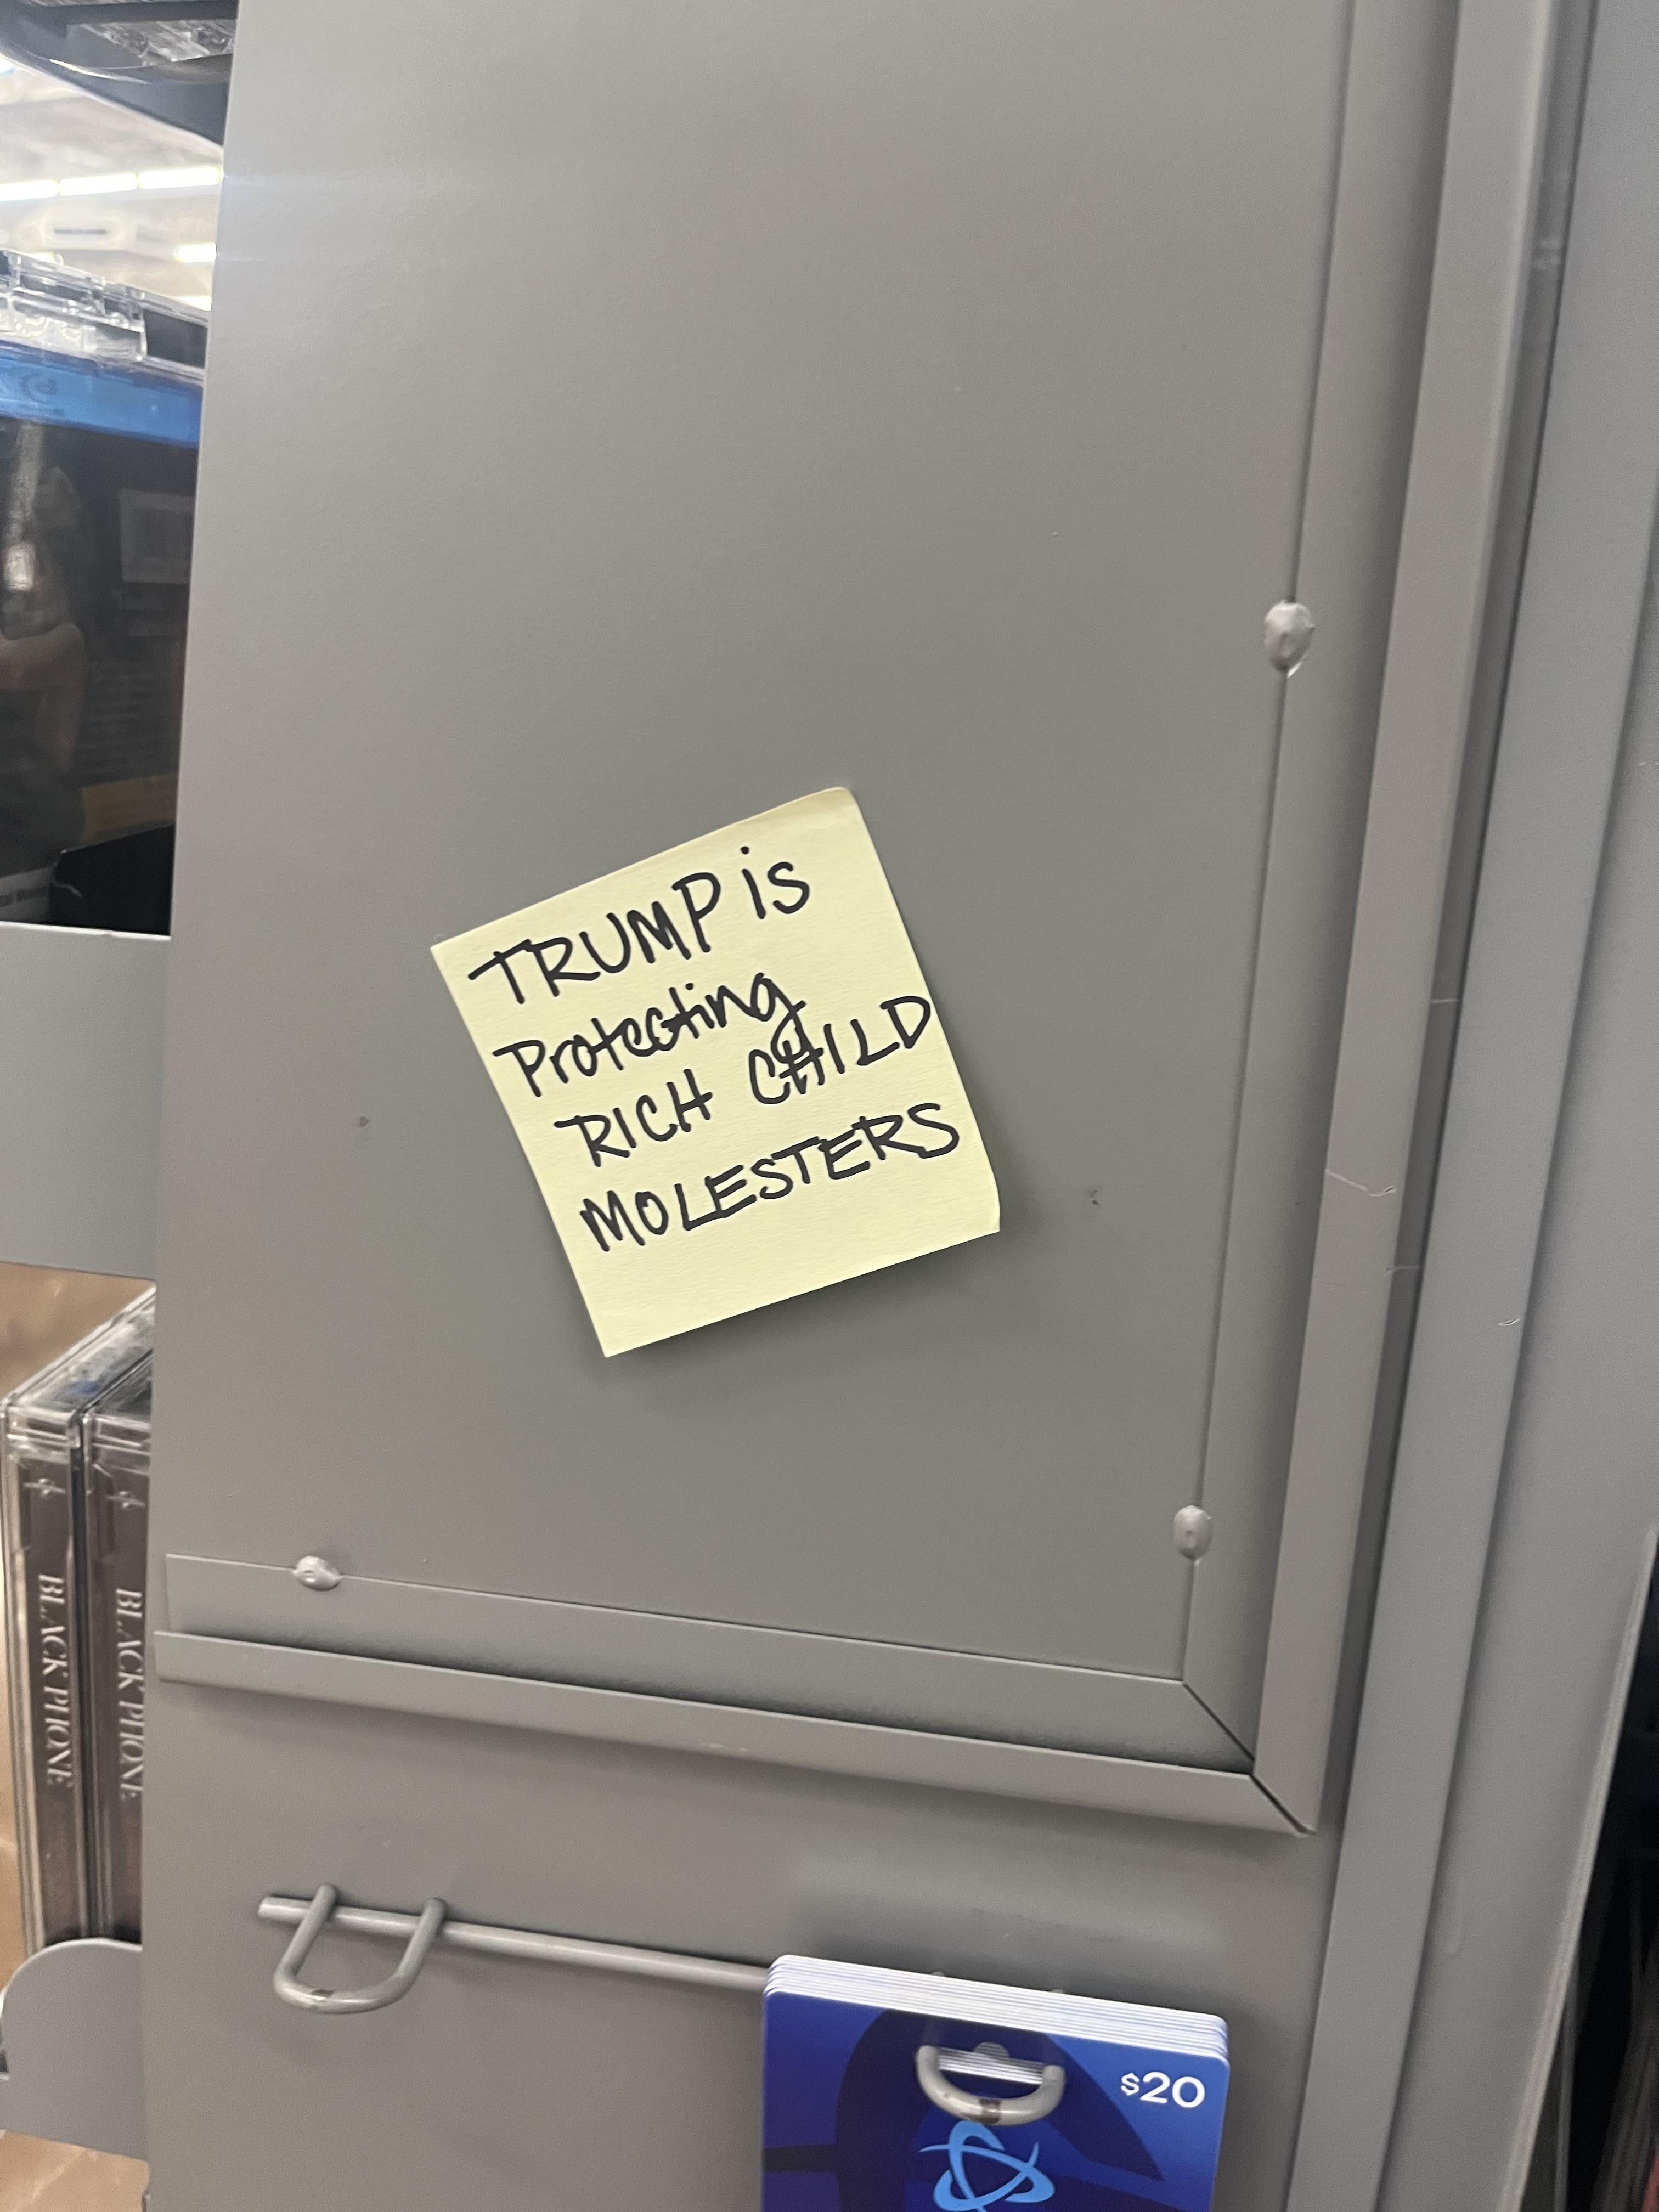 TRUMP is
Protecting
RICH CHILD
MOLESTERS
BLACK PHONE
BLACK PHONE
$20